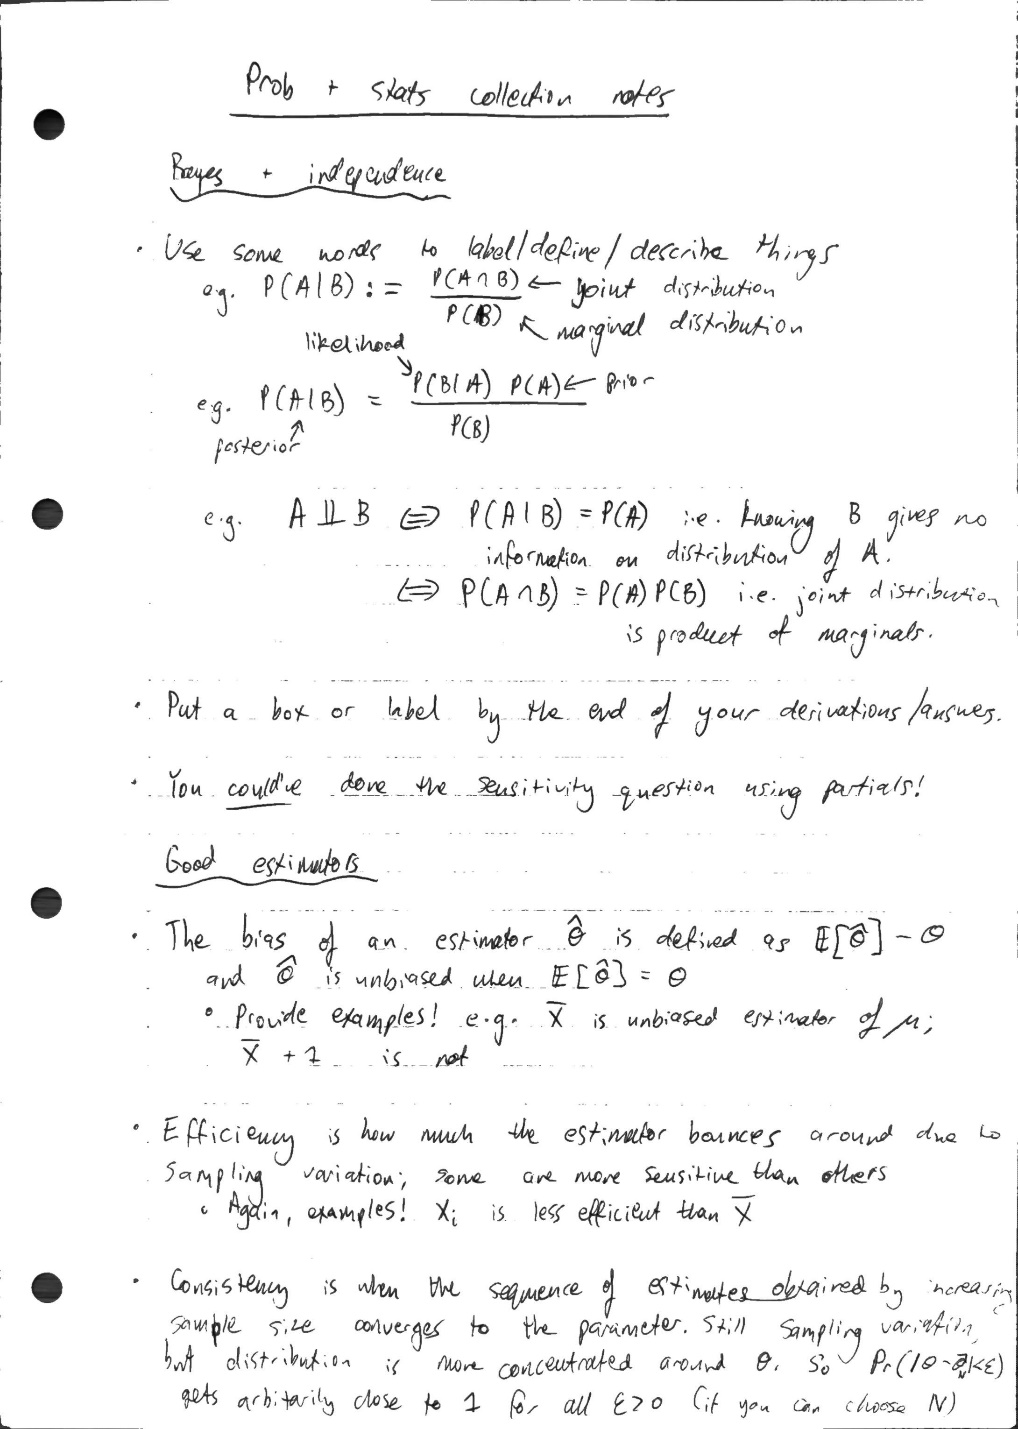 Prob + stats collection notes
Bayes + independence
· Use some words to label/define/describe things
e.g. P(A|B) := P(A∩B) ← joint distribution
P(B) ↖ marginal distribution
likelihood
e.g. P(A|B) = P(B|A) P(A) ← prior
P(B)
posterior
e.g. A ⫫ B ⇔ P(A|B) = P(A) i.e. knowing B gives no
information on distribution of A.
⇔ P(A∩B) = P(A)P(B) i.e. joint distribution
is product of marginals.
· Put a box or label by the end of your derivations/answers.
· You could've done the sensitivity question using partials!
Good estimators
· The bias of an estimator θ̂ is defined as 𝔼[θ̂] - θ
and θ̂ is unbiased when 𝔼[θ̂] = θ
∘ Provide examples! e.g. X̅ is unbiased estimator of μ;
X̅ + 1 is not
· Efficiency is how much the estimator bounces around due to
sampling variation; some are more sensitive than others
∘ Again, examples! Xᵢ is less efficient than X̅
· Consistency is when the sequence of estimates obtained by increasing
sample size converges to the parameter. Still sampling variation,
but distribution is more concentrated around θ. So Pr(|θ-θ̂_N|<ε)
gets arbitarily close to 1 for all ε>0 (if you can choose N)